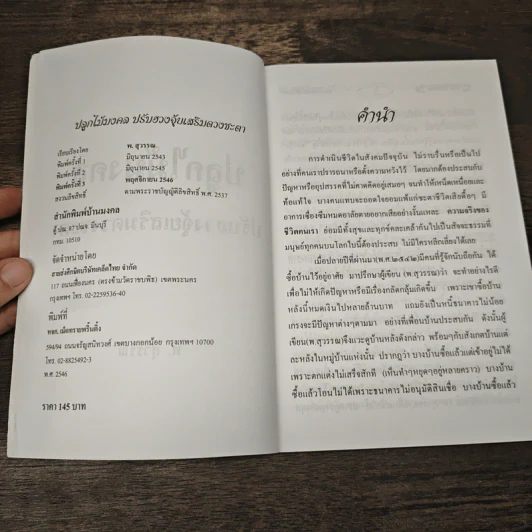 ปลูกไม้มงคล ปรับฮวงจุ้ยเสริมดวงชะตา
เรียบเรียงโดย พ. สุวรรณ
พิมพ์ครั้งที่ 1 มิถุนายน 2543
พิมพ์ครั้งที่ 2 มิถุนายน 2545
พิมพ์ครั้งที่ 3 พฤศจิกายน 2546
สงวนลิขสิทธิ์ ตามพระราชบัญญัติลิขสิทธิ์ พ.ศ. 2537
สำนักพิมพ์บ้านมงคล
ตู้ ปณ. 67 ปณจ. มีนบุรี
กทม. 10510
จัดจำหน่ายโดย
สายส่งศึกษิตบริษัทเคล็ดไทย จำกัด
117 ถนนเฟื่องนคร (ตรงข้ามวัดราชบพิธ) เขตพระนคร
กรุงเทพฯ โทร. 02-2259536-40
พิมพ์ที่
หจก. เม็ดทรายพริ้นติ้ง
594/84 ถนนจรัญสนิทวงศ์ เขตบางกอกน้อย กรุงเทพฯ 10700
โทร. 02-8825492-3
พ.ศ. 2546
ราคา 145 บาท
คำนำ
การดำเนินชีวิตในสังคมปัจจุบัน ไม่ราบรื่นหรือเป็นไป
อย่างที่คนเราปรารถนาหรือตั้งความหวังไว้ โดยมากต้องประสบกับ
ปัญหาหรืออุปสรรคที่ไม่คาดคิดอยู่เสมอๆ จนทำให้เหนื่อยหน่ายและ
ท้อแท้ใจ บางคนแทบจะถอดใจยอมแพ้แก่ชะตาชีวิตเสียดื้อๆ มี
อาการเซื่องซึมหมดอาลัยตายอยากเสียอย่างงั้นแหละ ความจริงของ
ชีวิตคนเรา ย่อมมีทั้งสุขและทุกข์คละเคล้ากันไปเป็นสัจธรรมที่
มนุษย์ทุกคนบนโลกใบนี้ต้องประสบ ไม่มีใครหลีกเลี่ยงได้เลย
เมื่อปลายปีที่ผ่านมา(พ.ศ.๒๕๔๒)มีคนที่รู้จักนับถือกัน ได้
ซื้อบ้านไว้อยู่อาศัย มาปรึกษาผู้เขียน (พ.สุวรรณ)ว่า จะทำอย่างไรดี
เพื่อไม่ให้เกิดปัญหาหรือมีเรื่องกลัดกลุ้มเกิดขึ้น เพราะเขาซื้อบ้าน
หลังนี้หมดเงินไปหลายล้านบาท แถมยังเป็นหนี้ธนาคารไม่น้อย
เกรงจะมีปัญหาต่างๆตามมา อย่างที่เพื่อนบ้านประสบกัน ดังนั้นผู้
เขียน(พ.สุวรรณ)จึงแวะดูบ้านหลังดังกล่าว พร้อมๆกับสังเกตบ้านแต่
ละหลังในหมู่บ้านแห่งนั้น ปรากฏว่า บางบ้านซื้อแล้วแต่เข้าอยู่ไม่ได้
เพราะตกแต่งไม่เสร็จสักที (เห็นทำๆหยุดๆอยู่หลายคราว) บางบ้าน
ซื้อแล้วโอนไม่ได้เพราะธนาคารไม่อนุมัติสินเชื่อ บางบ้านซื้อแล้ว